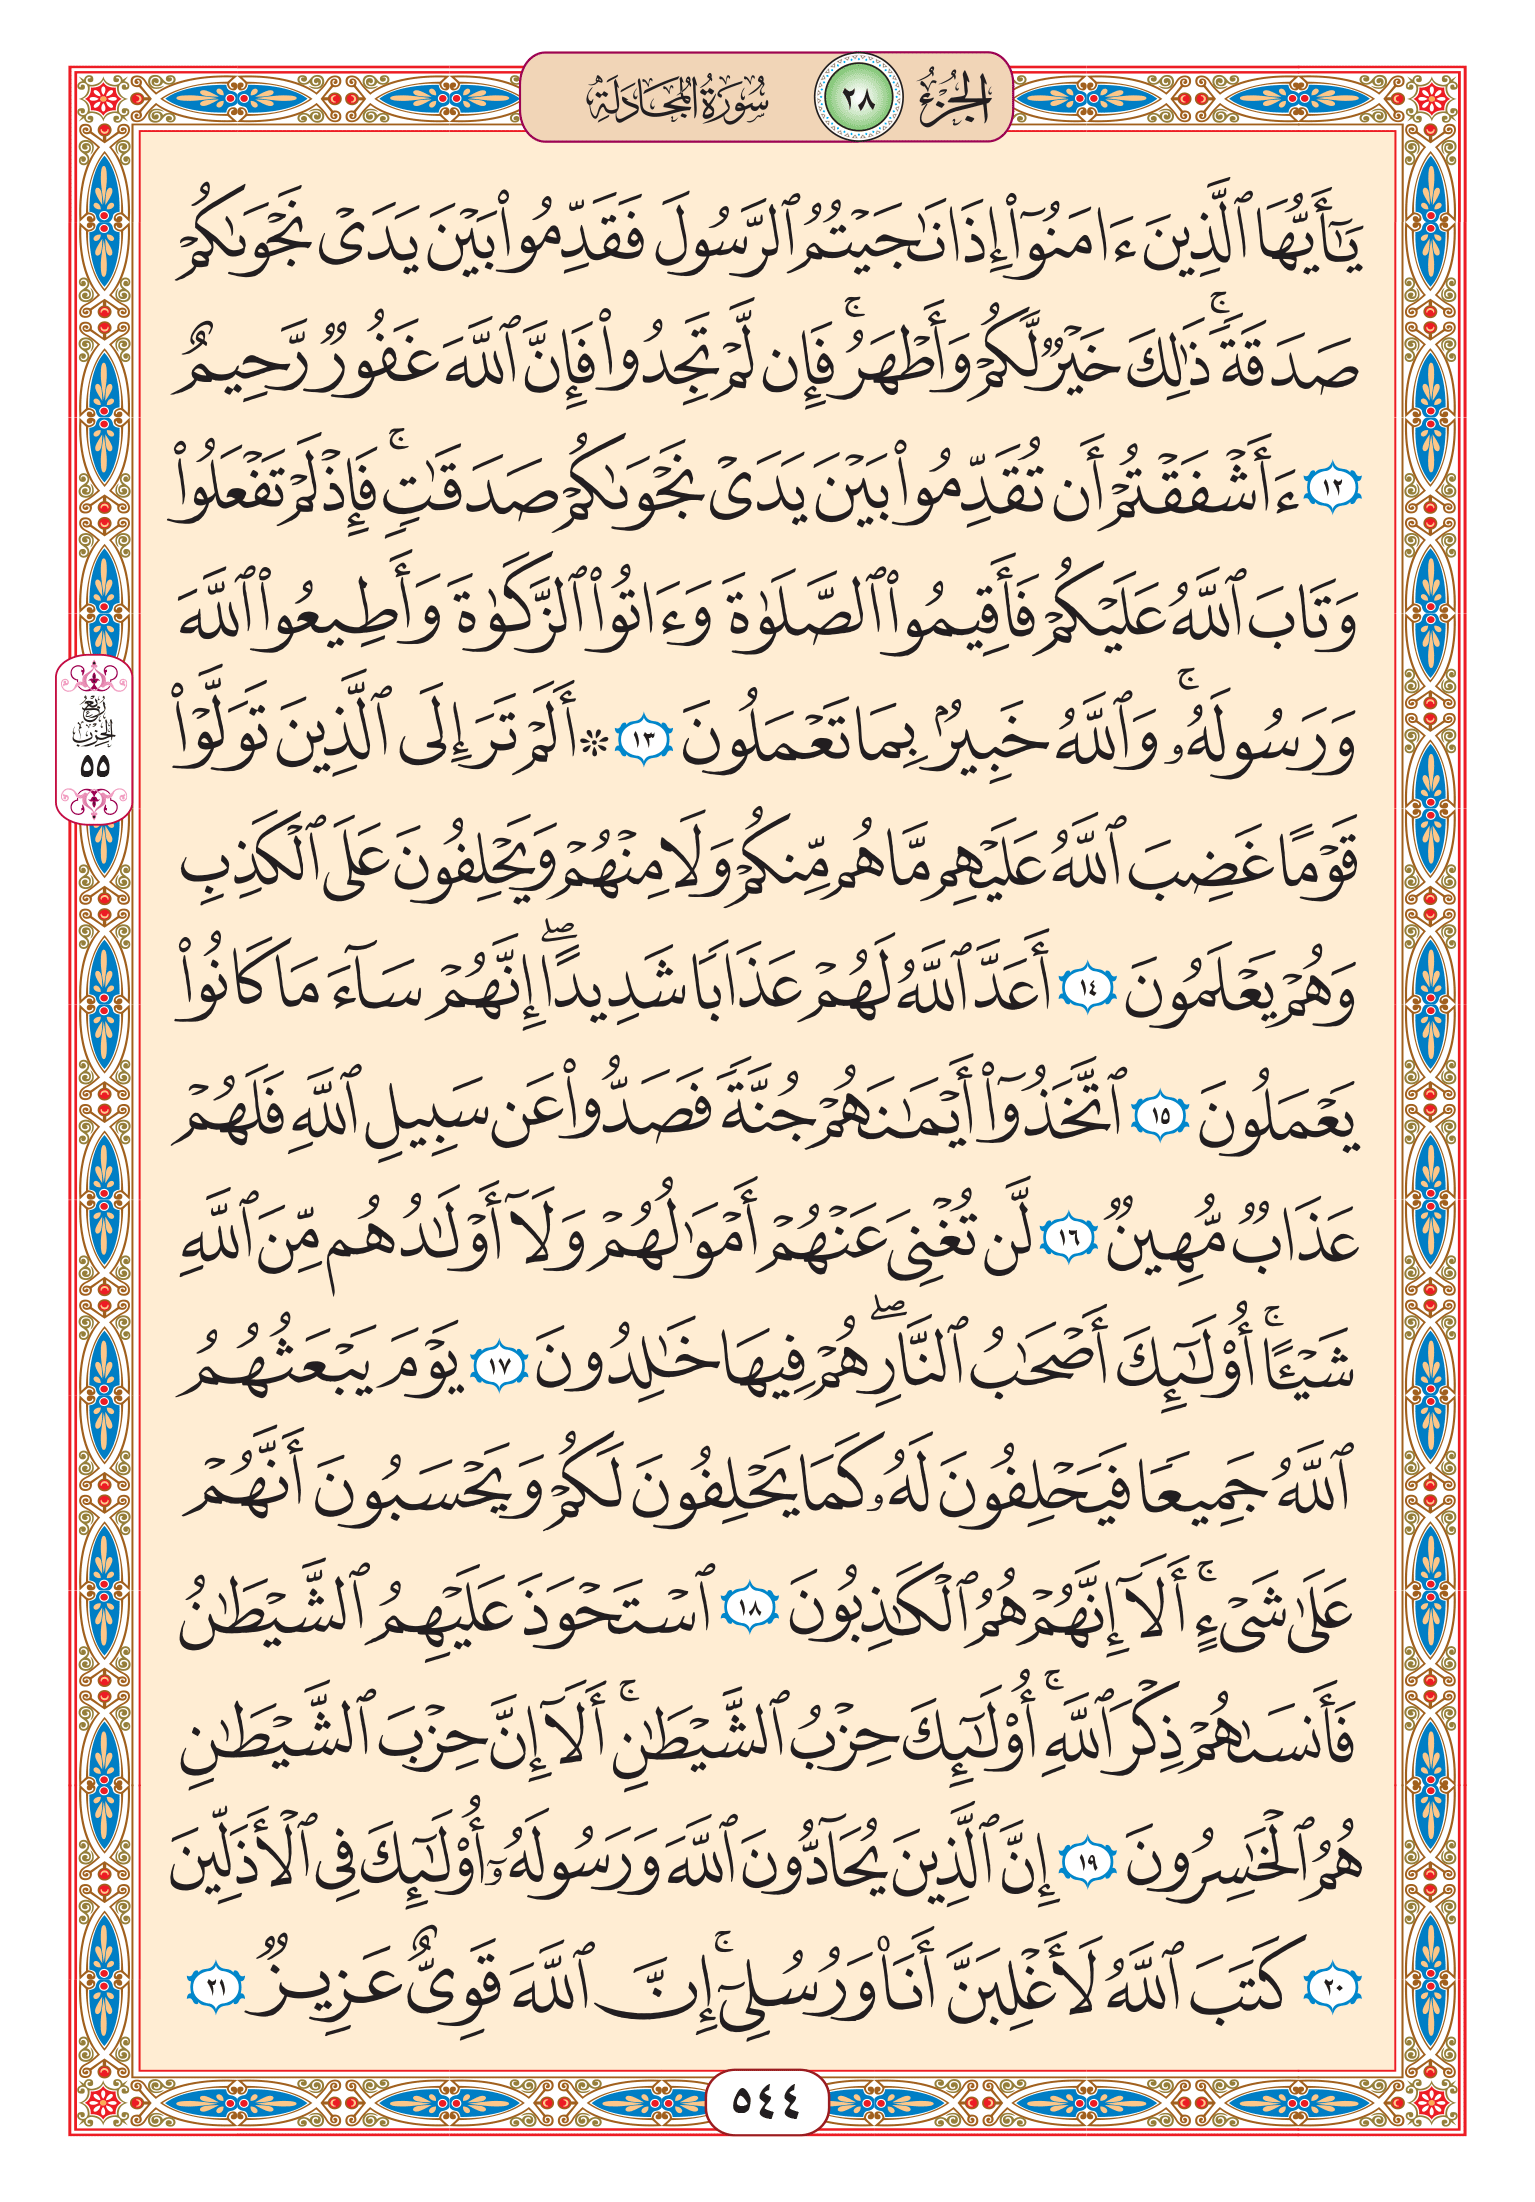 الجزء ٢٨ سورة المجادلة
يَٰٓأَيُّهَا ٱلَّذِينَ ءَامَنُوٓا۟ إِذَا نَٰجَيْتُمُ ٱلرَّسُولَ فَقَدِّمُوا۟ بَيْنَ يَدَىْ نَجْوَىٰكُمْ
صَدَقَةً ۚ ذَٰلِكَ خَيْرٌ لَّكُمْ وَأَطْهَرُ ۚ فَإِن لَّمْ تَجِدُوا۟ فَإِنَّ ٱللَّهَ غَفُورٌ رَّحِيمٌ
١٢ ءَأَشْفَقْتُمْ أَن تُقَدِّمُوا۟ بَيْنَ يَدَىْ نَجْوَىٰكُمْ صَدَقَٰتٍ ۚ فَإِذْ لَمْ تَفْعَلُوا۟
وَتَابَ ٱللَّهُ عَلَيْكُمْ فَأَقِيمُوا۟ ٱلصَّلَوٰةَ وَءَاتُوا۟ ٱلزَّكَوٰةَ وَأَطِيعُوا۟ ٱللَّهَ
وَرَسُولَهُۥ ۚ وَٱللَّهُ خَبِيرٌۢ بِمَا تَعْمَلُونَ ١٣ ۞ أَلَمْ تَرَ إِلَى ٱلَّذِينَ تَوَلَّوْا۟
ربع الحزب ٥٥
قَوْمًا غَضِبَ ٱللَّهُ عَلَيْهِم مَّا هُم مِّنكُمْ وَلَا مِنْهُمْ وَيَحْلِفُونَ عَلَى ٱلْكَذِبِ
وَهُمْ يَعْلَمُونَ ١٤ أَعَدَّ ٱللَّهُ لَهُمْ عَذَابًا شَدِيدًا ۖ إِنَّهُمْ سَآءَ مَا كَانُوا۟
يَعْمَلُونَ ١٥ ٱتَّخَذُوٓا۟ أَيْمَٰنَهُمْ جُنَّةً فَصَدُّوا۟ عَن سَبِيلِ ٱللَّهِ فَلَهُمْ
عَذَابٌ مُّهِينٌ ١٦ لَّن تُغْنِىَ عَنْهُمْ أَمْوَٰلُهُمْ وَلَآ أَوْلَٰدُهُم مِّنَ ٱللَّهِ
شَيْـًٔا ۚ أُو۟لَٰٓئِكَ أَصْحَٰبُ ٱلنَّارِ ۖ هُمْ فِيهَا خَٰلِدُونَ ١٧ يَوْمَ يَبْعَثُهُمُ
ٱللَّهُ جَمِيعًا فَيَحْلِفُونَ لَهُۥ كَمَا يَحْلِفُونَ لَكُمْ وَيَحْسَبُونَ أَنَّهُمْ
عَلَىٰ شَىْءٍ ۚ أَلَآ إِنَّهُمْ هُمُ ٱلْكَٰذِبُونَ ١٨ ٱسْتَحْوَذَ عَلَيْهِمُ ٱلشَّيْطَٰنُ
فَأَنسَىٰهُمْ ذِكْرَ ٱللَّهِ ۚ أُو۟لَٰٓئِكَ حِزْبُ ٱلشَّيْطَٰنِ ۚ أَلَآ إِنَّ حِزْبَ ٱلشَّيْطَٰنِ
هُمُ ٱلْخَٰسِرُونَ ١٩ إِنَّ ٱلَّذِينَ يُحَآدُّونَ ٱللَّهَ وَرَسُولَهُۥٓ أُو۟لَٰٓئِكَ فِى ٱلْأَذَلِّينَ
٢٠ كَتَبَ ٱللَّهُ لَأَغْلِبَنَّ أَنَا۠ وَرُسُلِىٓ ۚ إِنَّ ٱللَّهَ قَوِىٌّ عَزِيزٌ ٢١
٥٤٤